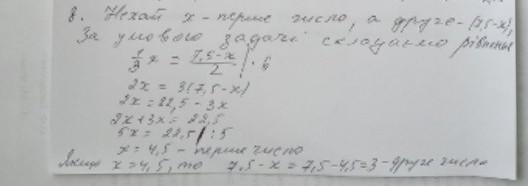 8. Нехай x - перше число, а друге - (7,5-x),
За умовою задачі складаємо рівняння
1/3 x = (7,5-x)/2 | · 6
2x = 3(7,5-x)
2x = 22,5 - 3x
2x+3x = 22,5
5x = 22,5 | : 5
x = 4,5 - перше число
Якщо x = 4,5, то 7,5 - x = 7,5 - 4,5 = 3 - друге число